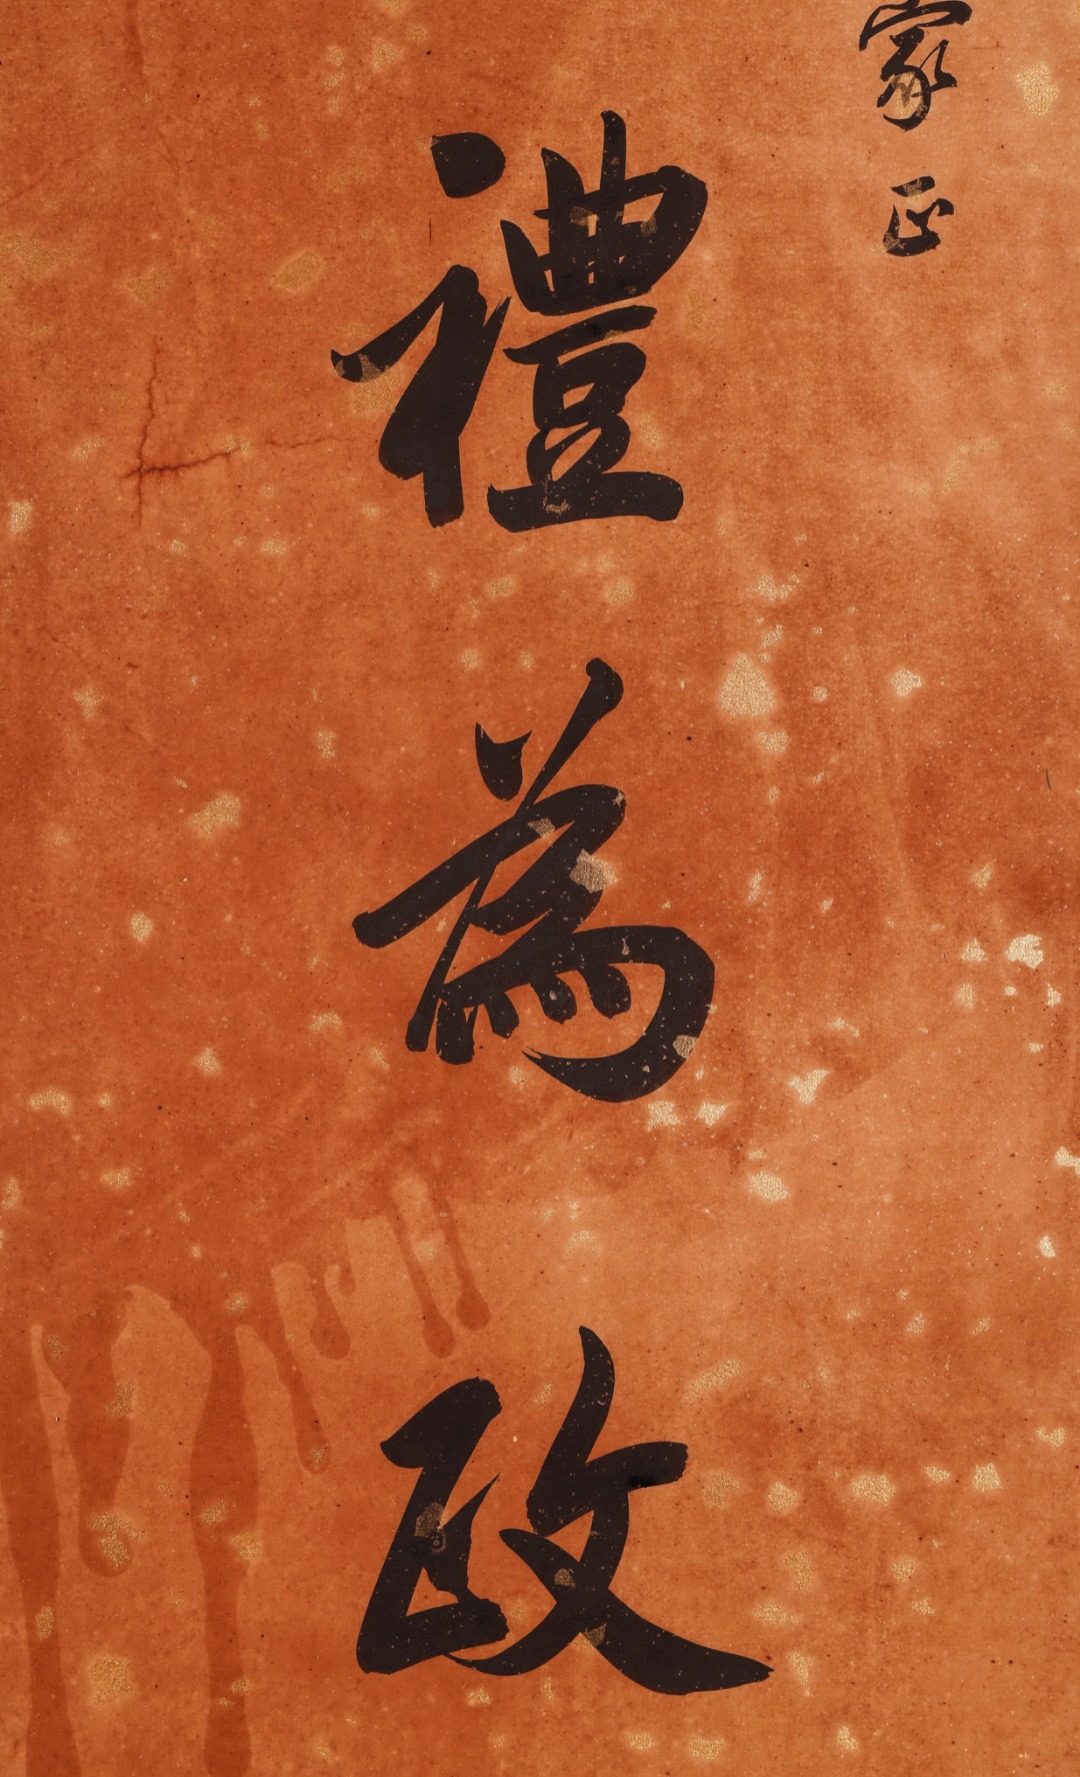 家正
禮為政